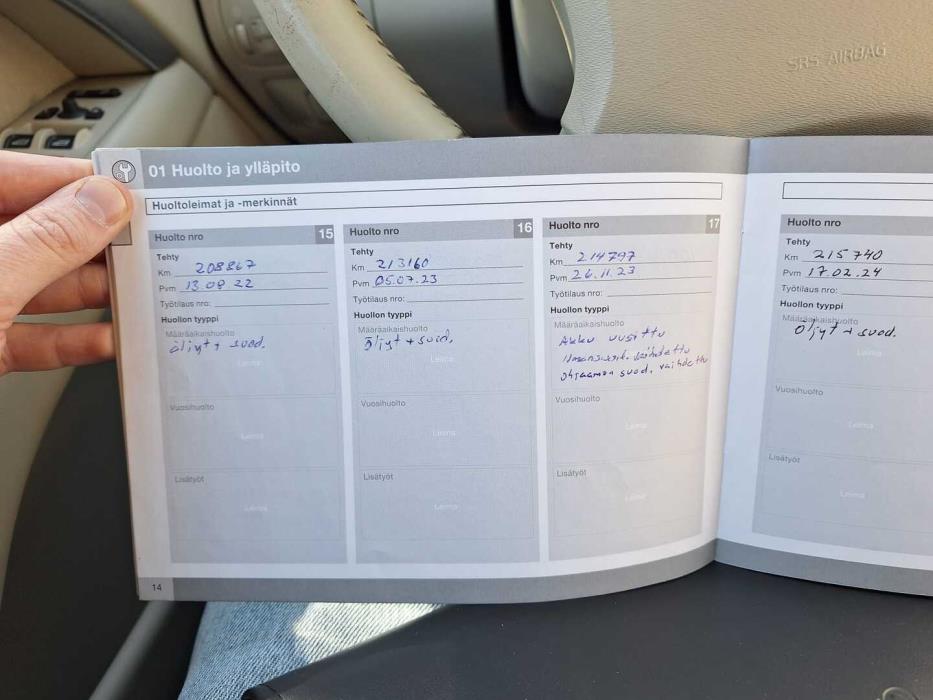 SRS AIRBAG
01 Huolto ja ylläpito
Huoltoleimat ja -merkinnät
Huolto nro 15
Tehty
Km 208867
Pvm 13.08 22
Työtilaus nro:
Huollon tyyppi
Määräaikaishuolto
öljyt + suod.
Vuosihuolto
Leima
Lisätyöt
Leima
Huolto nro 16
Tehty
Km 213160
Pvm 05.07.23
Työtilaus nro:
Huollon tyyppi
Määräaikaishuolto
öljyt + suod.
Vuosihuolto
Leima
Lisätyöt
Leima
Huolto nro 17
Tehty
Km 214797
Pvm 26.11.23
Työtilaus nro:
Huollon tyyppi
Määräaikaishuolto
Akku uusittu
ilmansuod. vaihdettu
ohjaamon suod. vaihdettu
Vuosihuolto
Leima
Lisätyöt
Leima
14
Huolto nro
Tehty
Km 215740
Pvm 17.02.24
Työtilaus nro:
Huollon tyyppi
Määräaikaishuolto
öljyt + suod.
Vuosihuolto
Leima
Lisätyöt
Leima